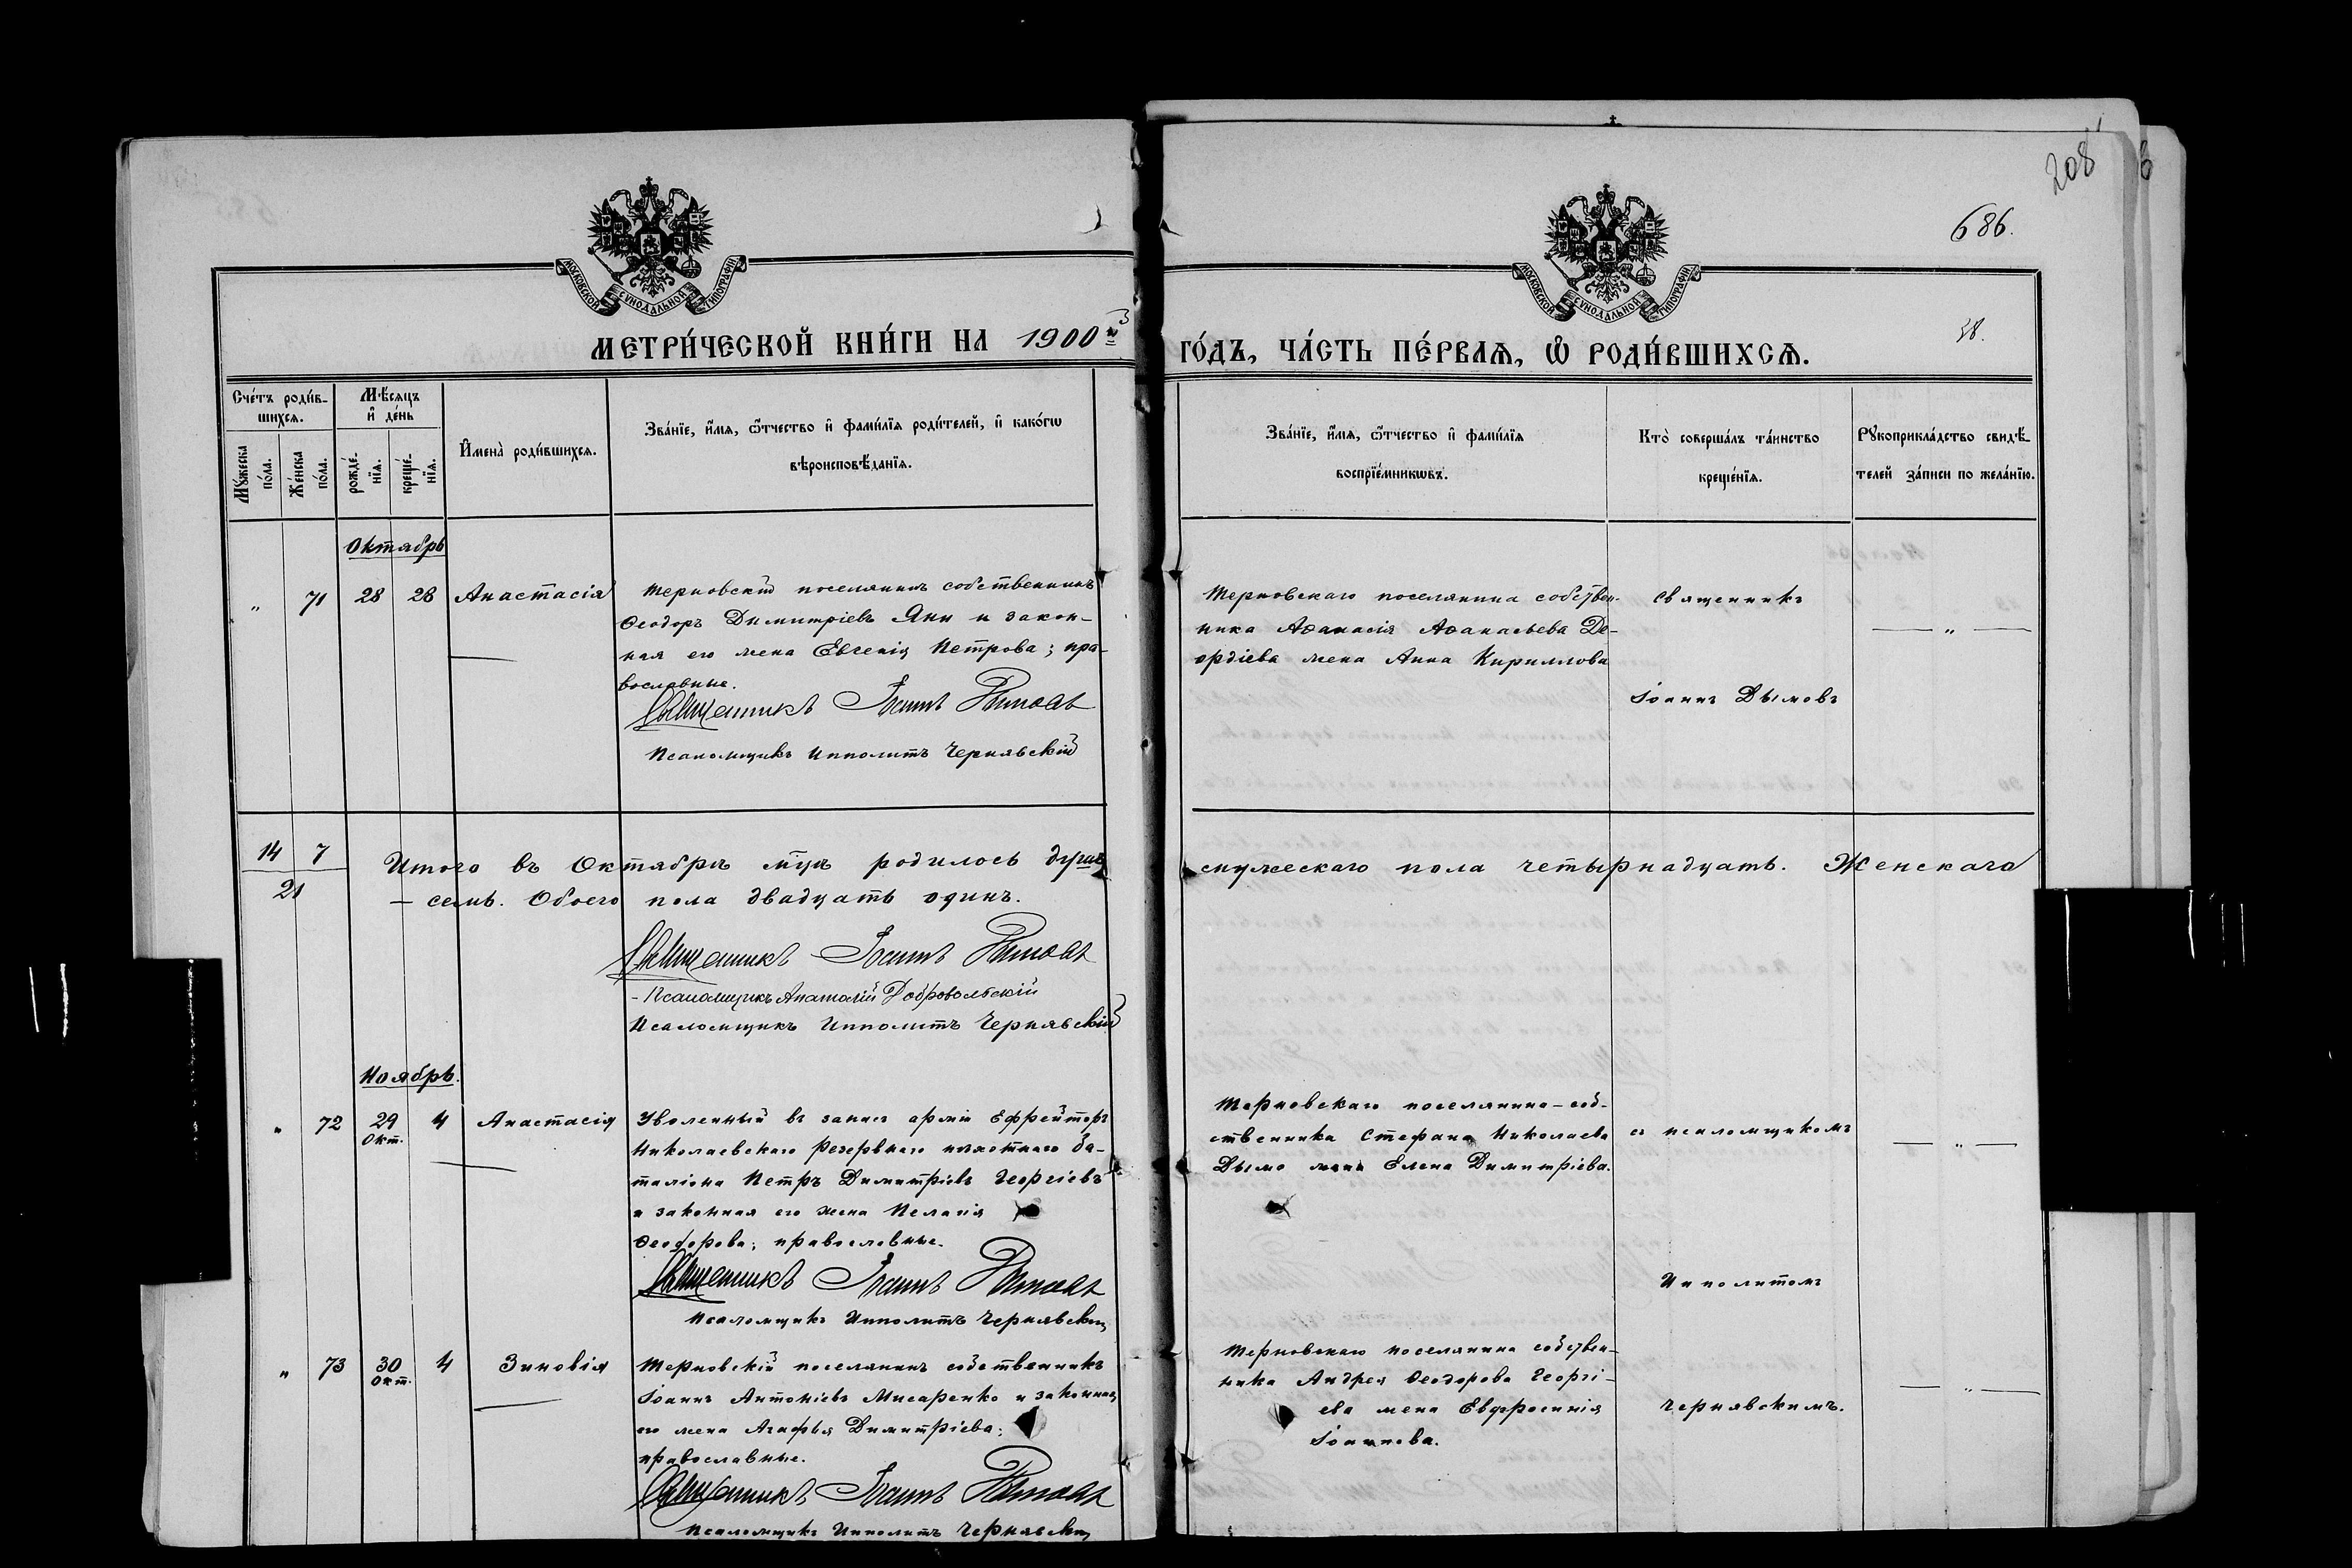 208
686.
МОСКОВСКОЙ СУНОДАЛЬНОЙ ТИПОГРАФІИ
МОСКОВСКОЙ СУНОДАЛЬНОЙ ТИПОГРАФІИ
38.
МЕТРИ́ЧЕСКОЙ КНИ́ГИ НА 1900й
ГО́ДЪ, ЧА́СТЬ ПЕ́РВАѦ, Ѡ РОДИ́ВШИХСѦ.
Сче́тъ роди́в-
шихсѧ.
Мꙋ́жеска
по́ла.
Же́нска
по́ла.
Мѣ́сяцъ
и҆ де́нь
рожде́-
нїѧ.
креще́-
нїѧ.
И҆мена̀ роди́вшихсѧ.
Зва́нїе, и҆́мѧ, ѻ҆́тчество и҆ фами́лїѧ роди́телей, и҆ како́гѡ
вѣроисповѣ́данїѧ.
Зва́нїе, и҆́мѧ, ѻ҆́тчество и҆ фами́лїѧ
воспрїе́мникѡвъ.
Кто̀ соверша́лъ та́инство
креще́нїѧ.
Рꙋкоприкла́дство свидѣ́-
телей за́писи по жела́нїю.
Октябрь
„ 71 28 28 Анастасія
Терновскій поселянинъ собственникъ
Ѳеодоръ Димитріевъ Яни и закон-
ная его жена Евгенія Петрова; пра-
вославные.
Священникъ Іоаннъ Дымовъ
Псаломщикъ Ипполитъ Чернявскій
Терновскаго поселянина собствен-
ника Аѳанасія Аѳанасьева Де-
ордіева жена Анна Кириллова
Священникъ
Іоаннъ Дымовъ
— „ —
14 7
21
Итого въ Октябрѣ м͠цѣ родилось душъ
мужескаго пола четырнадцать. Женскаго
— семь. Обоего пола двадцать одинъ.
Священникъ Іоаннъ Дымовъ
- Псаломщикъ Анатолій Добровольскій
Псаломщикъ Ипполитъ Чернявскій
Ноябрь.
„ 72 29 Окт. 4 Анастасія
Уволенный въ запасъ арміи Ефрейторъ
Николаевскаго резервнаго пѣхотнаго ба-
таліона Петръ Димитріевъ Георгіевъ
и законная его жена Пелагія
Ѳеодорова; православные.
Священникъ Іоаннъ Дымовъ
Псаломщикъ Ипполитъ Чернявскій
Терновскаго поселянина-соб-
ственника Стефана Николаева
Дымо жена Елена Димитріева.
съ псаломщикомъ
Ипполитомъ
— „ —
„ 73 30 Окт. 4 Зиновія
Терновскій поселянинъ собственникъ
Іоаннъ Антоніевъ Мисаренко и законная
его жена Агафья Димитріева;
православные.
Священникъ Іоаннъ Дымовъ
Псаломщикъ Ипполитъ Чернявскій
Терновскаго поселянина собствен-
ника Андрея Ѳеодорова Георгі-
ева жена Евфросинія
Іоаннова.
Чернявскимъ.
— „ —